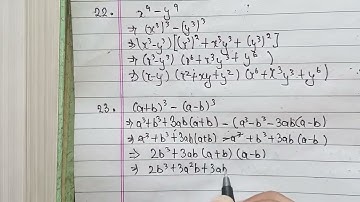 22. x⁹ - y⁹
⇒ (x³)³ - (y³)³
⇒ (x³-y³) [(x³)² + x³y³ + (y³)²]
⇒ (x³-y³) (x⁶ + x³y³ + y⁶)
⇒ (x-y) (x²+xy+y²) (x⁶+x³y³+y⁶)
23. (a+b)³ - (a-b)³
⇒ a³+b³+3ab(a+b) - (a³-b³-3ab(a-b)
⇒ a³+b³+3ab(a+b) - a³+b³+3ab(a-b)
⇒ 2b³+3ab (a+b) (a-b)
⇒ 2b³+3a²b+3ab